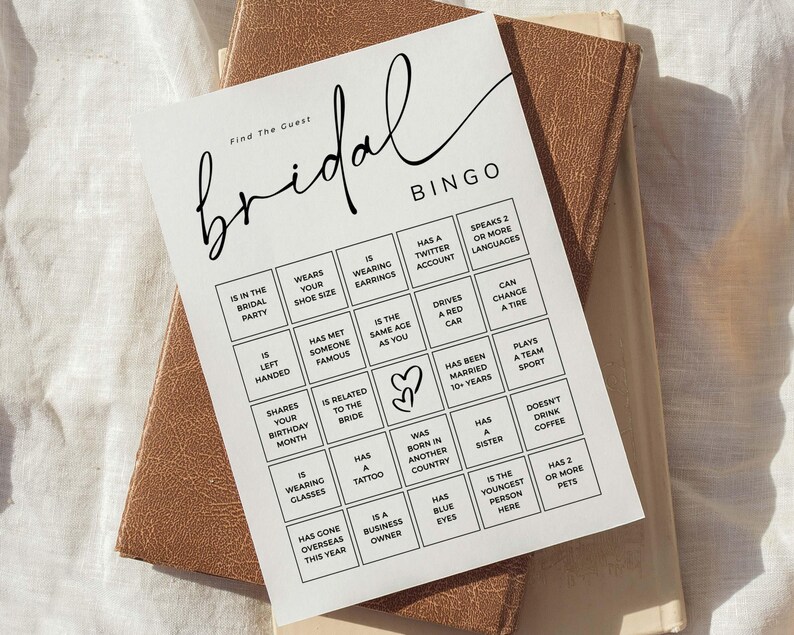 Find The Guest
bridal
BINGO
IS IN THE
BRIDAL
PARTY
WEARS
YOUR
SHOE SIZE
IS
WEARING
EARRINGS
HAS A
TWITTER
ACCOUNT
SPEAKS 2
OR MORE
LANGUAGES
IS
LEFT
HANDED
HAS MET
SOMEONE
FAMOUS
IS THE
SAME AGE
AS YOU
DRIVES
A RED
CAR
CAN
CHANGE
A TIRE
SHARES
YOUR
BIRTHDAY
MONTH
IS RELATED
TO THE
BRIDE
HAS BEEN
MARRIED
10+ YEARS
PLAYS
A TEAM
SPORT
IS
WEARING
GLASSES
HAS
A
TATTOO
WAS
BORN IN
ANOTHER
COUNTRY
HAS
A
SISTER
DOESN'T
DRINK
COFFEE
HAS GONE
OVERSEAS
THIS YEAR
IS A
BUSINESS
OWNER
HAS
BLUE
EYES
IS THE
YOUNGEST
PERSON
HERE
HAS 2
OR MORE
PETS